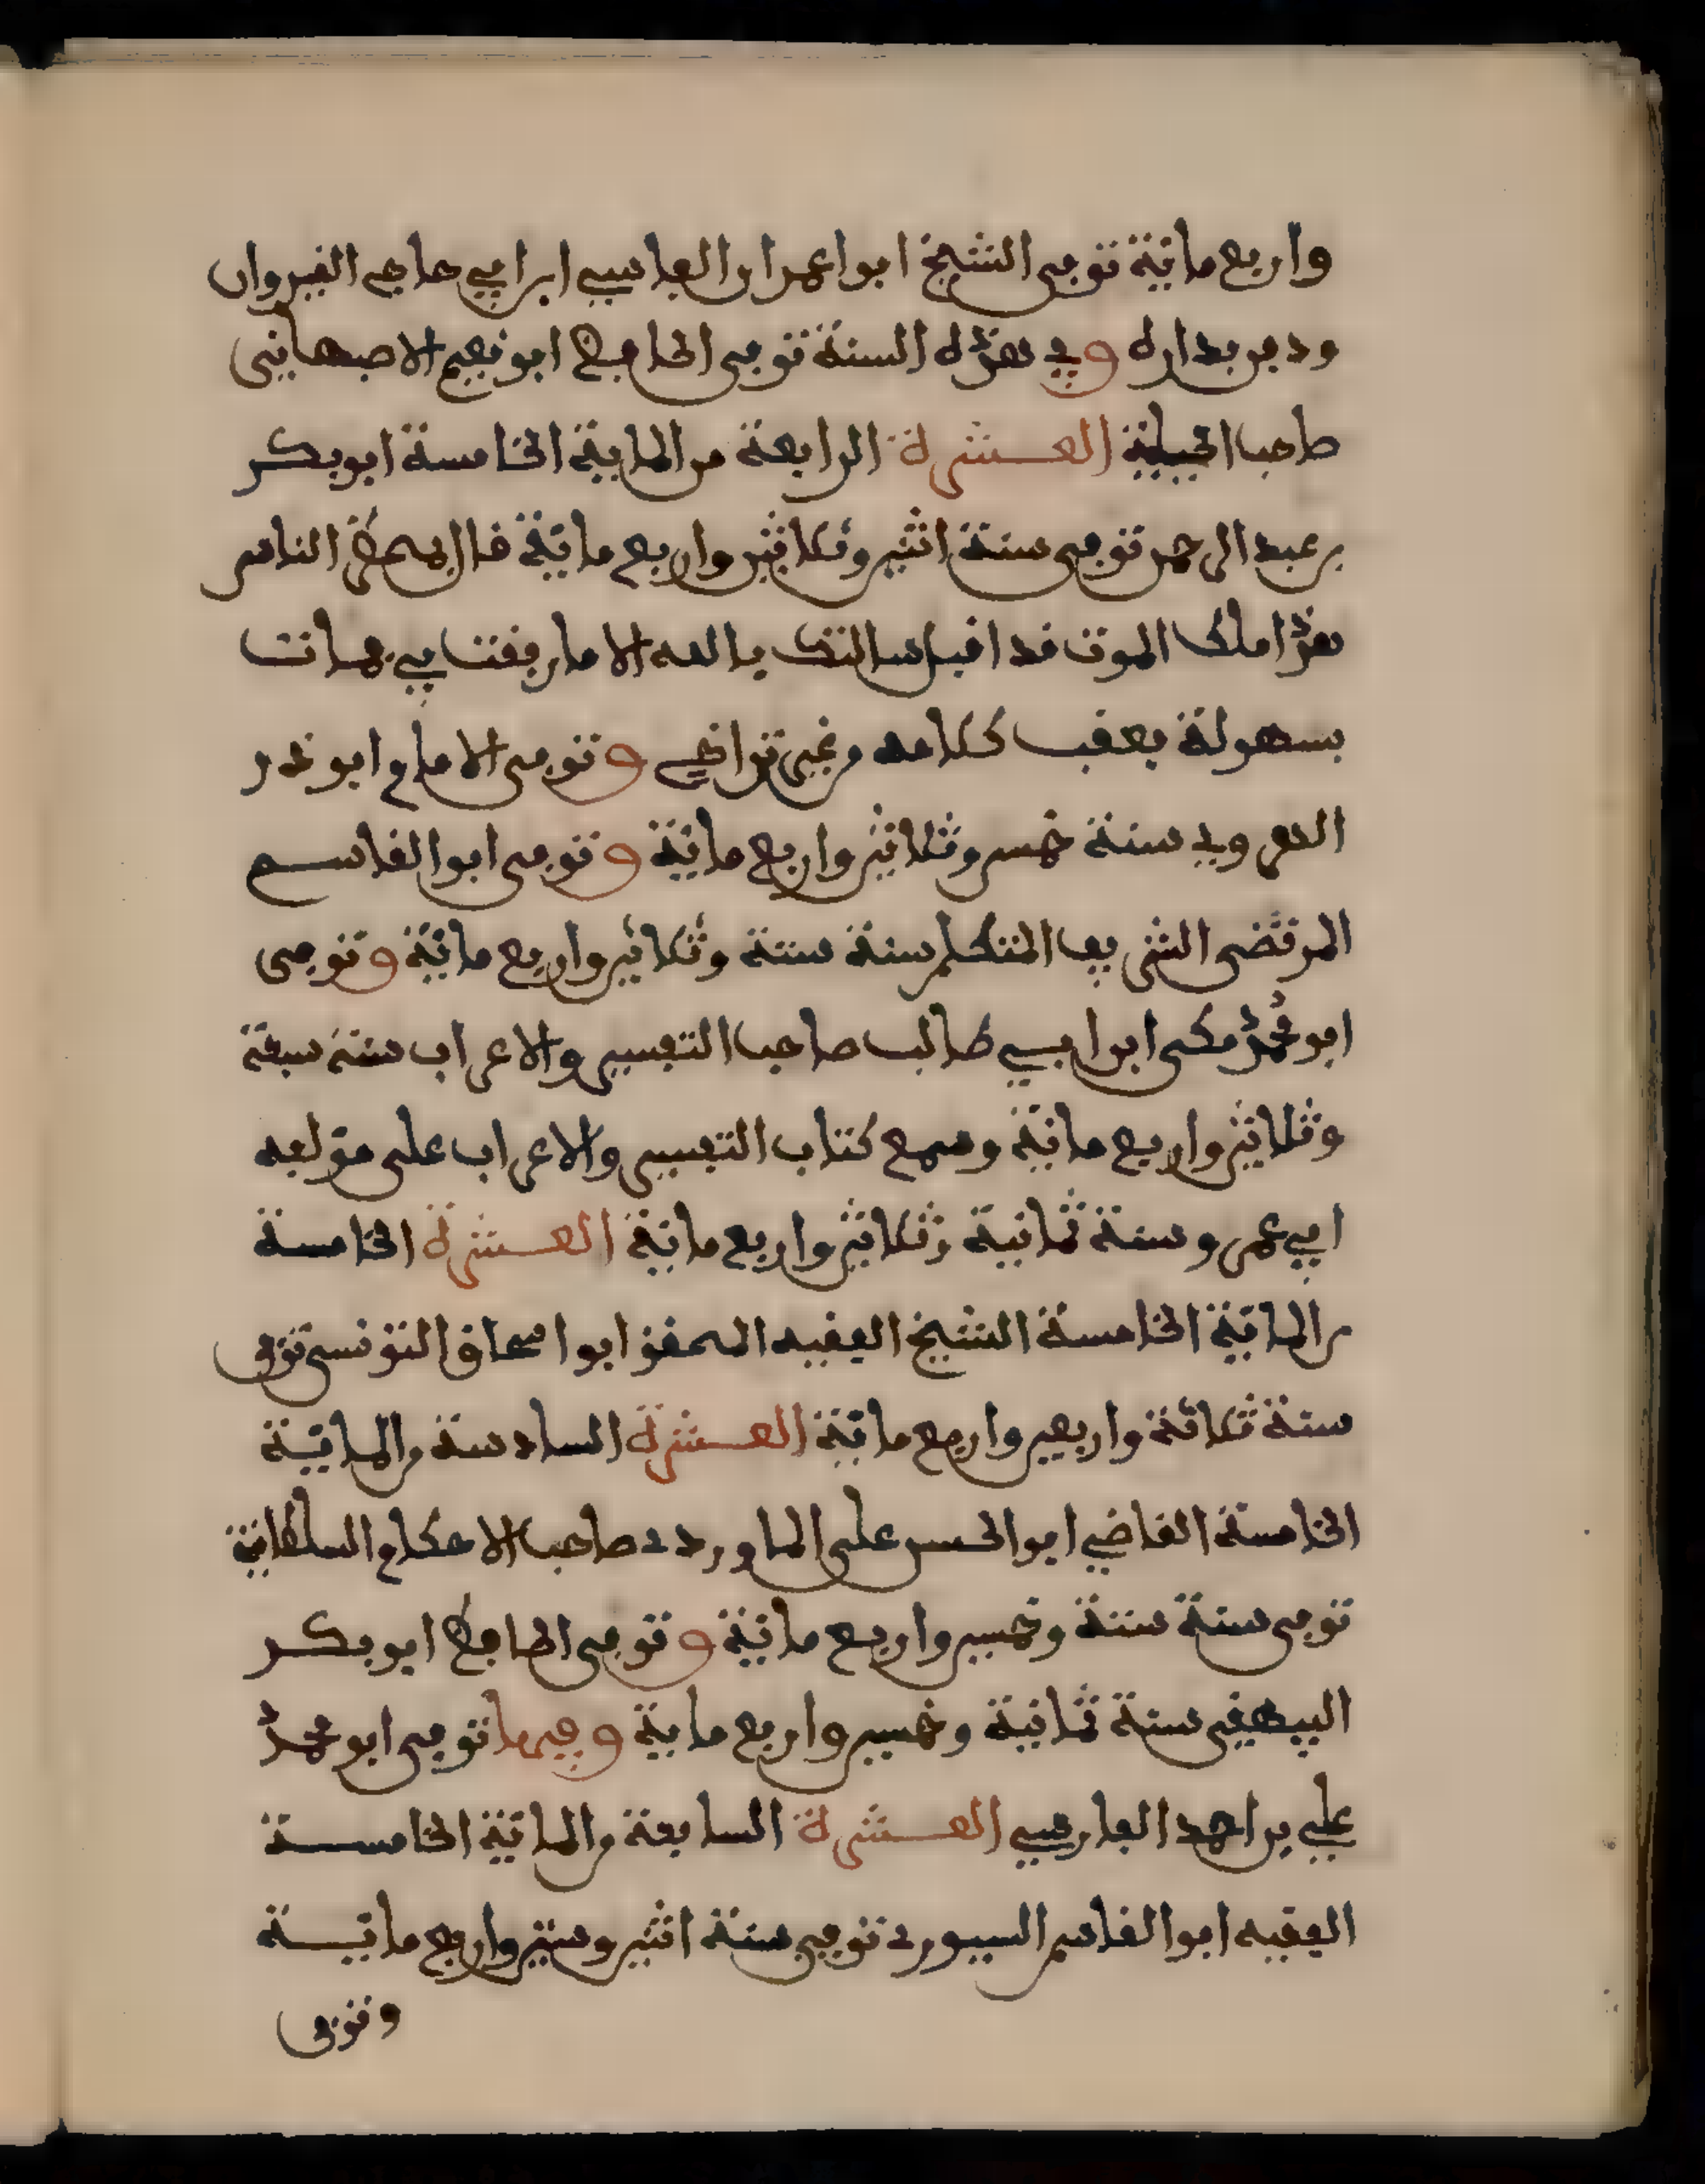 واربع مائة توفي الشيخ ابوا عمران الفاسي ابن ابي حاجي القيروان
ودفن بداره وفي هذه السنة توفي الحافظ ابو نعيم الاصبهاني
صاحب الحلية العشرة الرابعة من المائة الخامسة ابو بكر
بن عبد الرحمن توفي سنة اثنين وثلاثين واربع مائة قال لمحضر الناس
هذا ملك الموت قد اقبل سالتك بالله الا ما رفقت بي فمات
بسهولة بعقب كلامه من غير تراخي وتوفي الامام ابو ذر
الهروي سنة خمس وثلاثين واربع مائة وتوفي ابوا القاسم
المرتضى الشريف المتكلم سنة ستة وثلاثين واربع مائة وتوفي
ابو محمد مكي ابن ابي طالب صاحب التفسير والاعراب سنة سبعة
وثلاثين واربع مائة وسمع كتاب التفسير والاعراب على مؤلفه
ابي عمرو سنة ثمانية وثلاثين واربع مائة العشرة الخامسة
من المائة الخامسة الشيخ الفقيه المحقق ابوا اسحاق التونسي توفي
سنة ثلاثة واربعين واربع مائة العشرة السادسة من المائة
الخامسة القاضي ابوا الحسن علي الماوردي صاحب الاحكام السلطانية
توفي سنة ستة وخمسين واربع مائة وتوفي الحافظ ابو بكر
البيهقي سنة ثمانية وخمسين واربع مائة وفيها توفي ابو محمد
علي بن احمد الفارسي العشرة السابعة من المائة الخامسة
الفقيه ابوا القاسم السيوري توفي سنة اثنين وستين واربع مائة
وتوفي